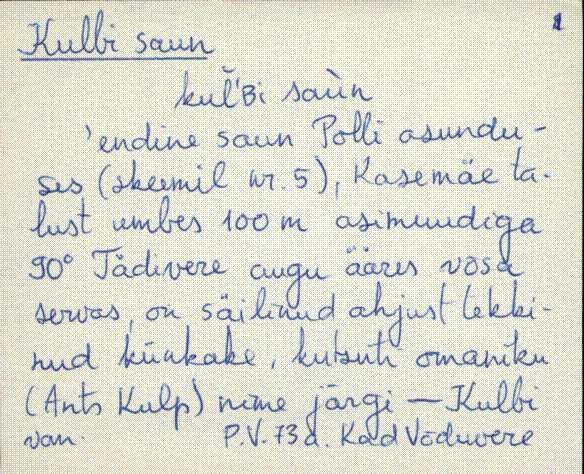 1
Kulbi saun
kul̆'ʙi saùn
'endine saun Polli asundu-
ses (skeemil nr. 5), Kasemäe ta-
lust umbes 100 m asimuudiga
90° Tädivere augu ääres võsa
servas, on säilinud ahjust tekki-
nud künkake, kutsuti omaniku
(Ants Kulp) nime järgi — Kulbi
van. P.V. 73 a. Kad Võduvere